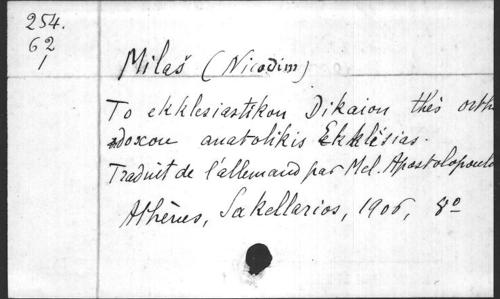 254.
62
1
Milaš (Nicodim)
To ekklesiastikon Dikaion thės orth
odoxou anatolikis Ekklésias.
Traduit de l'allemand par Mel. Apostolopoulo
Athènes, Sakellarios, 1906, 8º